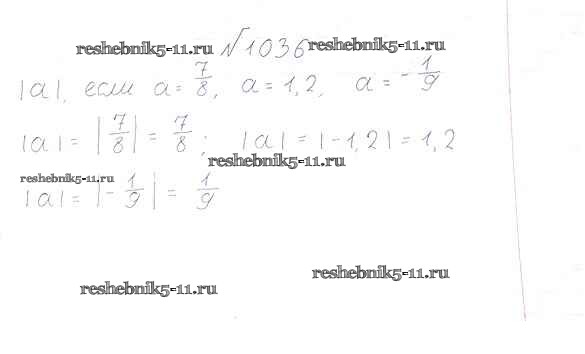 reshebnik5-11.ru №1036 reshebnik5-11.ru
|a|, если a = 7/8, a = 1,2, a = -1/9
|a| = |7/8| = 7/8; |a| = |-1,2| = 1,2
reshebnik5-11.ru
reshebnik5-11.ru
|a| = |-1/9| = 1/9
reshebnik5-11.ru
reshebnik5-11.ru